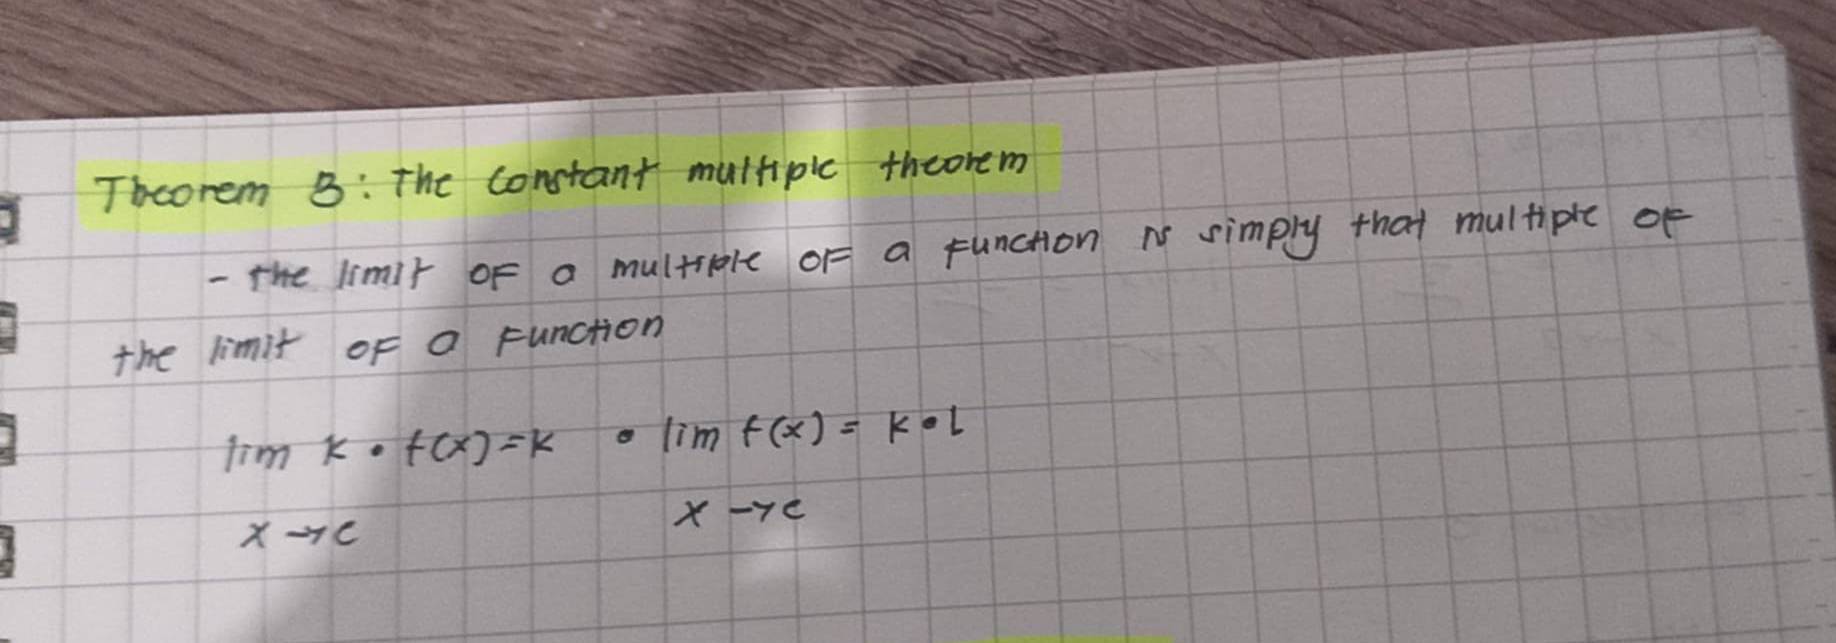 Theorem 3: The constant multiple theorem
- the limit OF a multiple OF a Function is simply that multiple OF
the limit OF a Function
lim K • f(x) = K • lim f(x) = K • L
x → c x → c